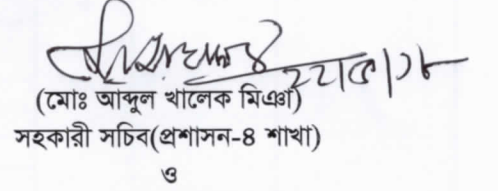 (মোঃ আব্দুল খালেক মিঞা)
সহকারী সচিব(প্রশাসন-4 শাখা)
ও